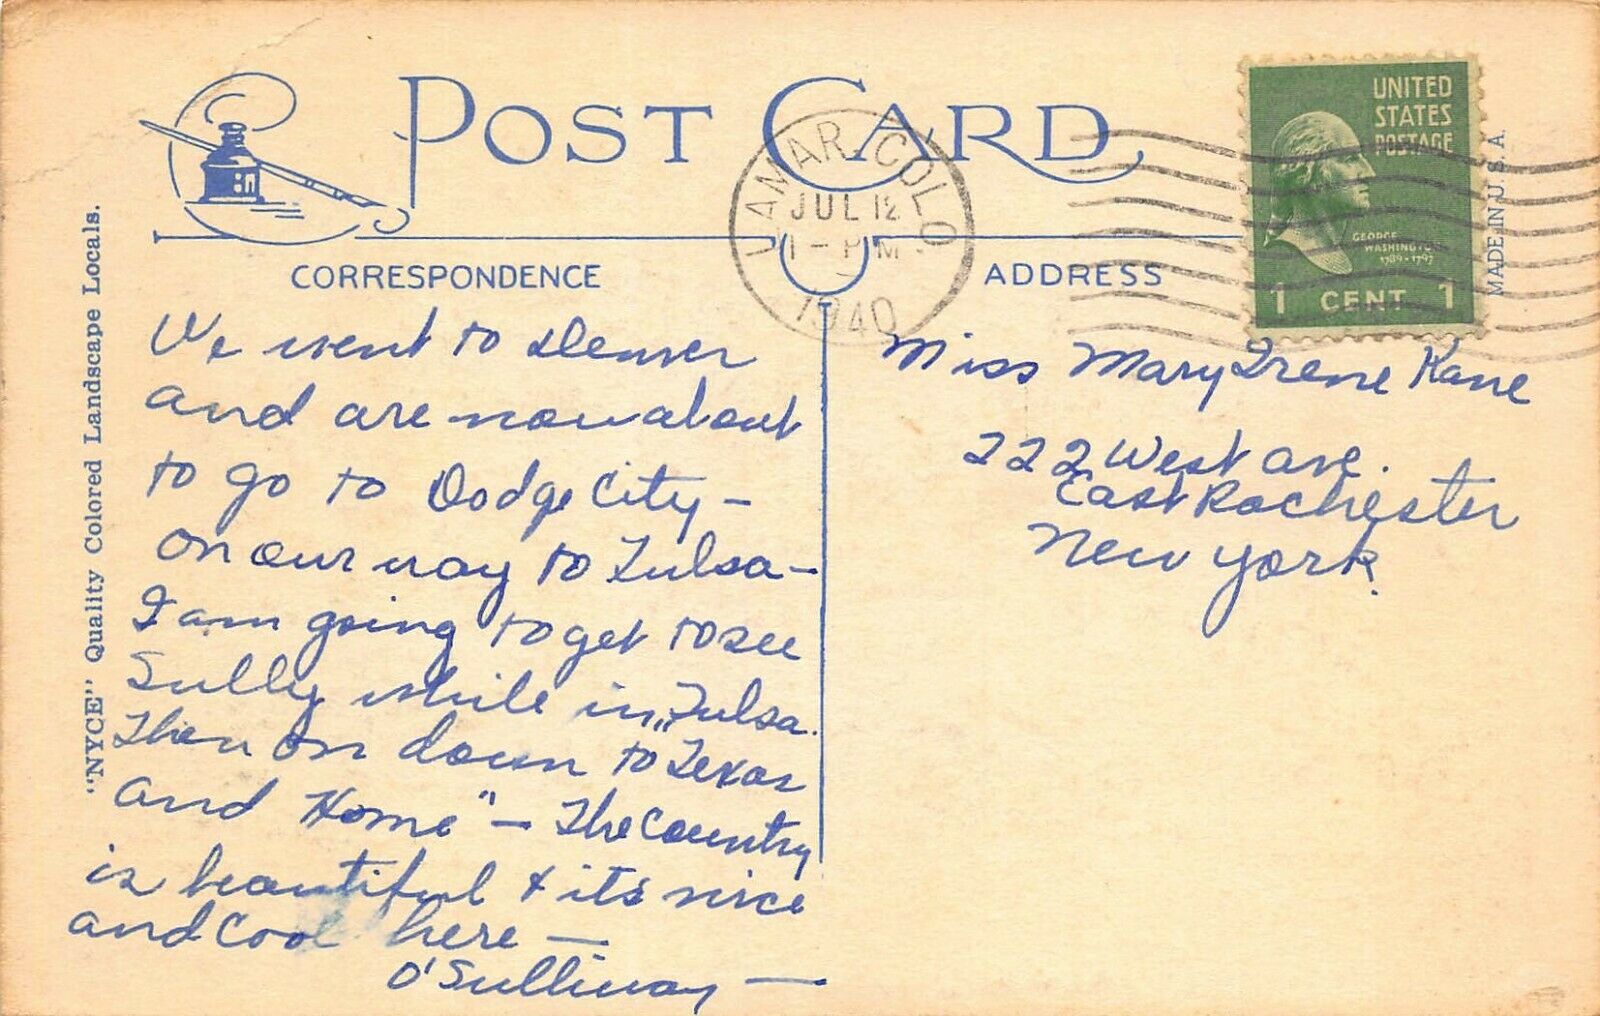 POST CARD
LAMAR, COLO
JUL 12
1 - PM
1940
UNITED
STATES
POSTAGE
GEORGE
WASHINGTON
1789-1797
1 CENT 1
MADE IN U.S.A.
"NYCE" Quality Colored Landscape Locals.
CORRESPONDENCE
We went to Denver
and are now about
to go to Dodge City -
on our way to Tulsa -
I am going to get to see
Sully while in Tulsa.
Then on down to "Texas
and Home" - The Country
is beautiful & its nice
and cool here -
O'Sullivan -
ADDRESS
Miss Mary Irene Kane
222 West Ave.
East Rochester
New York.